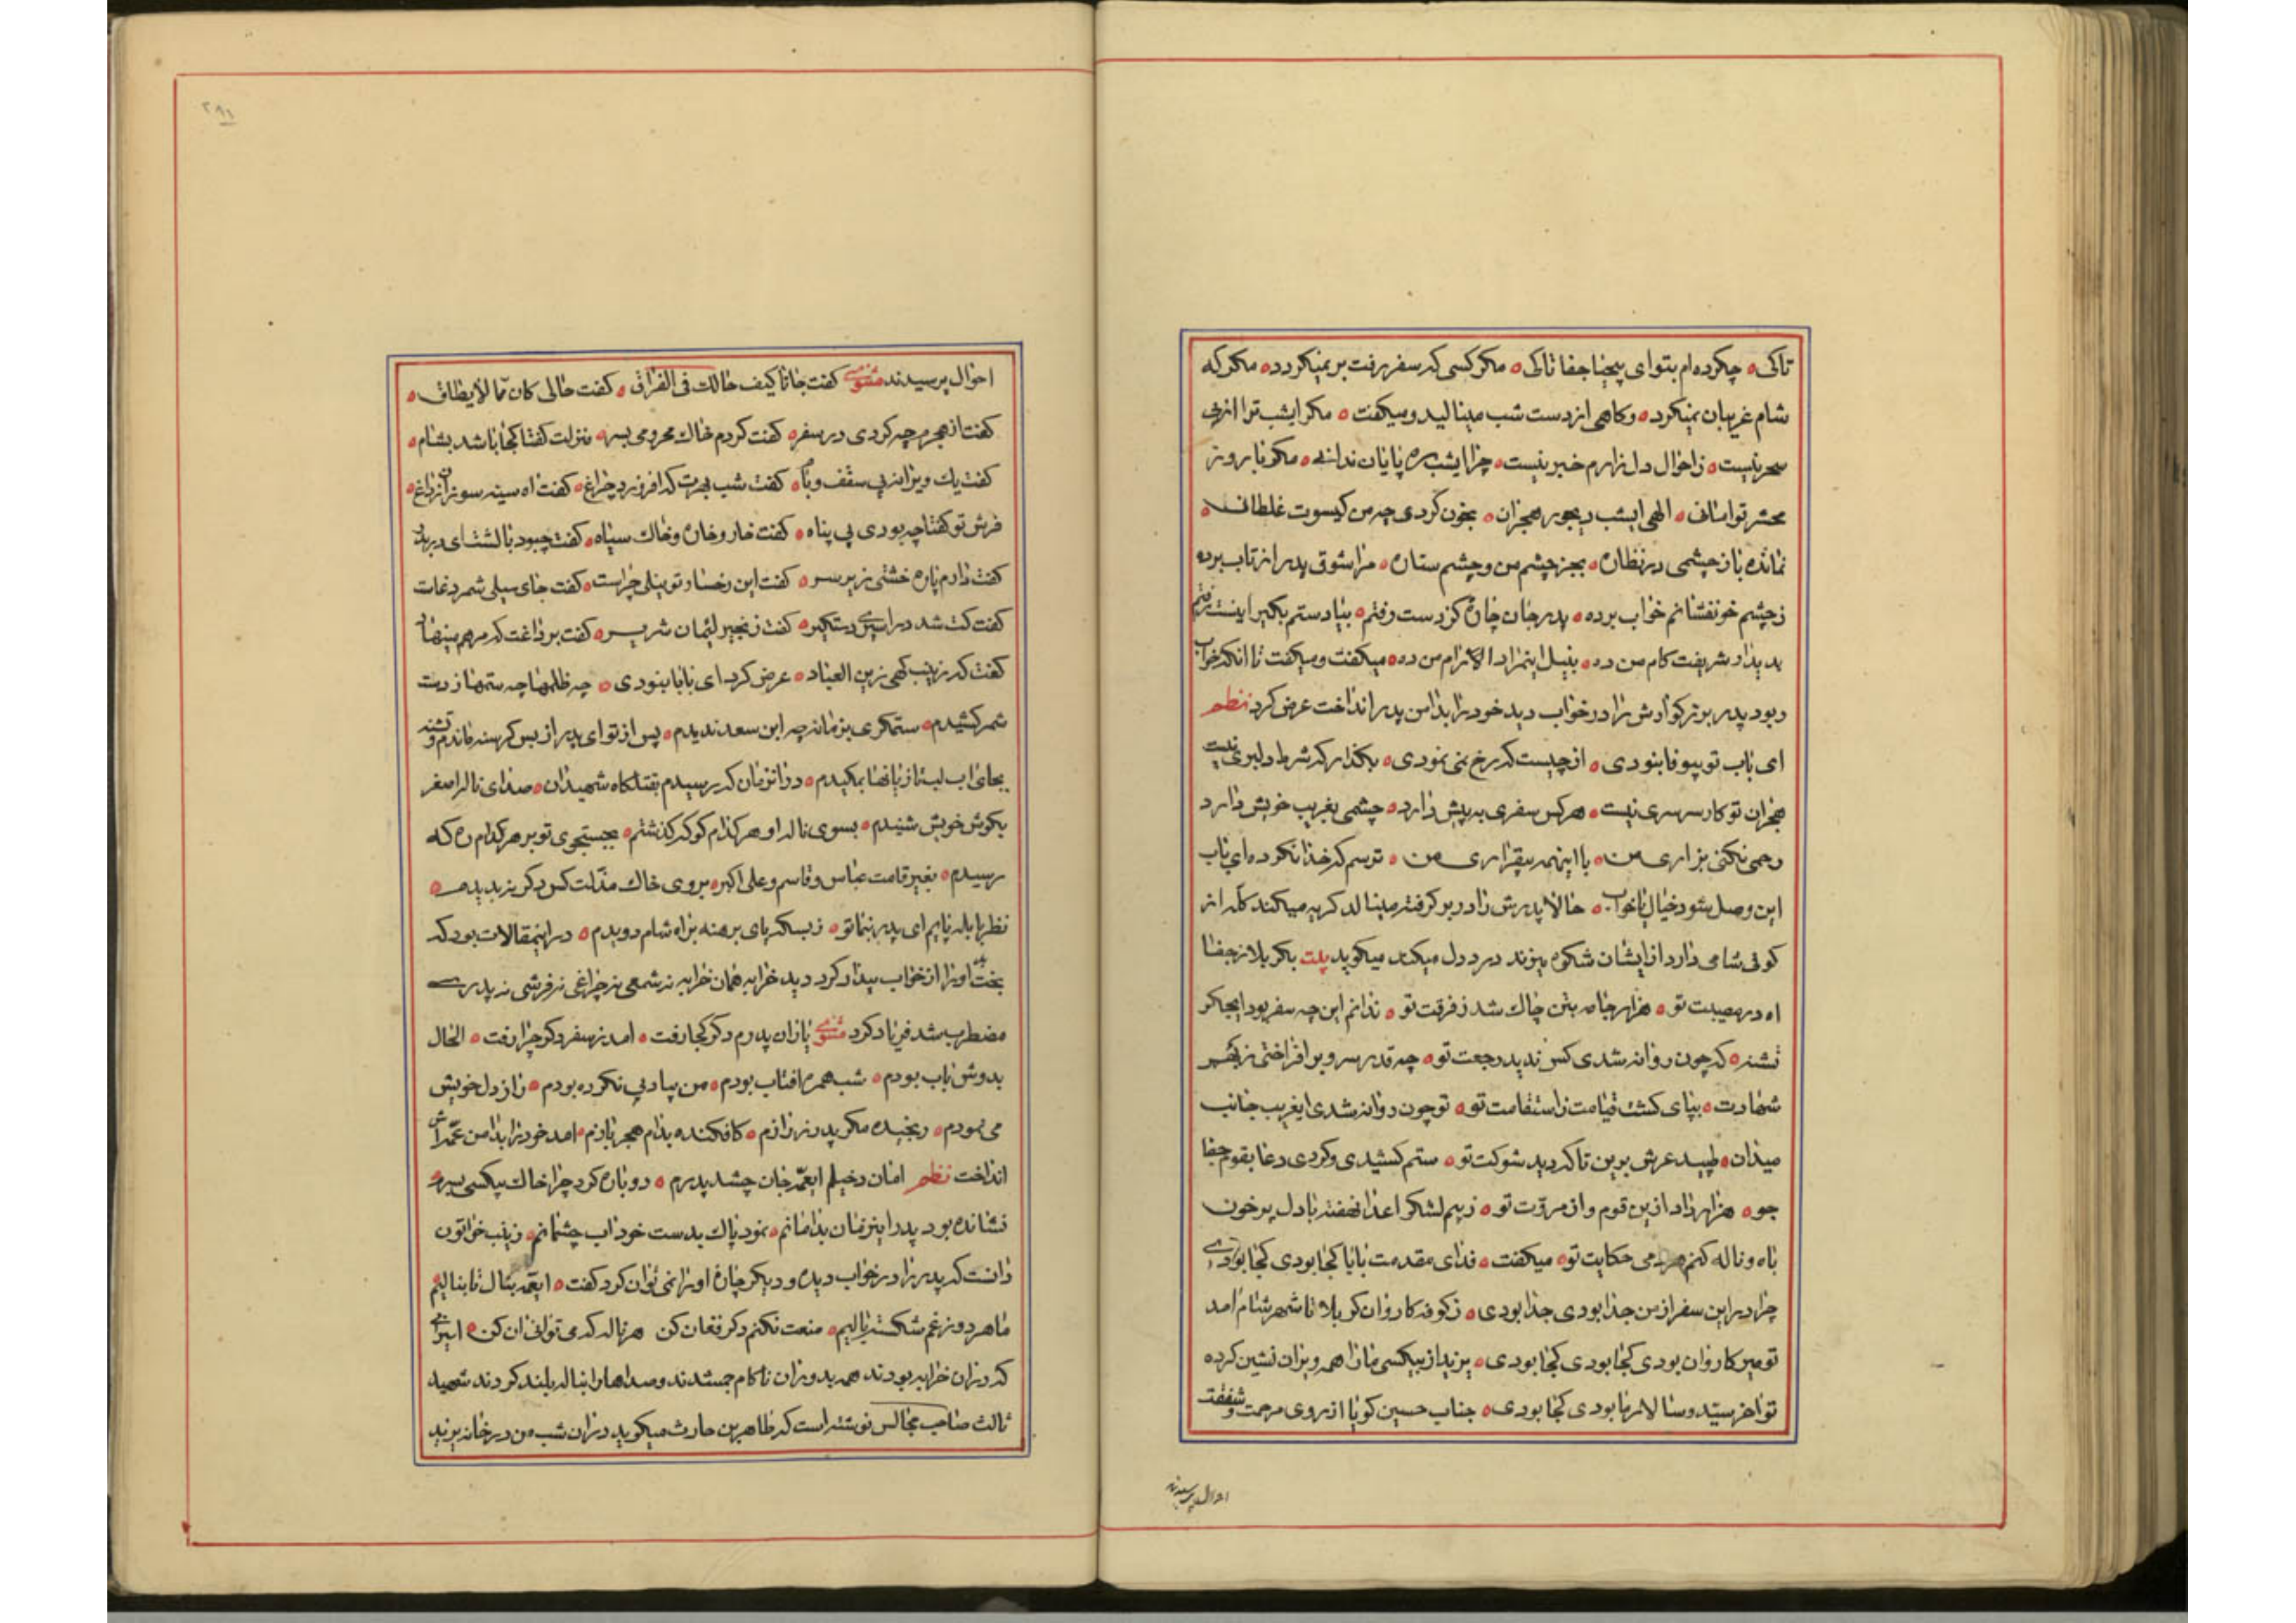 تاکی ه چکرده‌ام بتوای بیحیا جفا تاکی ه مکر کسی که سفر رفت بر نمیکردد ه مکر که
شام غریبان نمیکرد ه و کاهی از دست شب مینالید و میکفت ه مکر ایشب ترا از پی
سحر نیست ه ز احوال دل زارم خبر نیست ه چرا ایشب ره پایان ندانی ه مکر تا روز
محشر توامانی ه الهی ایشب دیجور هجران ه بخون کردی چه من کیسوت غلطان ه
نمانده باز چشمی در نظاره ه بجز چشم من و چشم ستاره ه مرا شوق پدر از تاب برده
ز چشم خونفشانم خواب برده ه پدر جان چاره کز دست رفتم ه بیا دستم بکیر اینست رفتم
بدیدار شریفت کام من ده ه میکفت و میکفت تا انکه خواب
ربود پدر بزرکوارش را در خواب دید خود را بدامن پدر انداخت عرض کرد نظم
ای باب تو بیوفا نبودی ه از چیست که رخ نمی نمودی ه بکذار که شرط دلبری نیست
هجران تو کار سرسری نیست ه هر کس سفری به پیش دارد ه چشمی بغریب خویش دارد
رحمی نکنی بزاری من ه با اینهمه بیقراری من ه ترسم که خدا نکرده ای باب
این وصل شود خیال یا خواب ه حالا پدرش را در بر کرفته مینالد کریه میکند کله از
کوفی شامی دارد از ایشان شکوه میزند درد دل میکند میکوید بیت بکربلا ز جفا
اه در مصیبت تو ه هزار جامه بتن چاک شد ز فرقت تو ه ندانم این چه سفر بود ایجکر
تشنه ه که چون روانه شدی کس ندید رجعت تو ه چه قدر سرو بر افراختی ز بهر
شهادت ه بپای کشت قیامت ز استقامت تو ه تو چون روانه شدی ایغریب جانب
میدان ه طپید عرش برین تا که دید شوکت تو ه ستم کشیدی و کردی دعا بقوم جفا
جو ه هزار داد ازین قوم و از مروت تو ه ز بیم لشکر اعدا نهفته با دل پر خون
باه و ناله کنم حکایت تو ه میکفت ه فدای مقدمت بابا کجا بودی کجا بودی
چرا در این سفر از من جدا بودی جدا بودی ه ز کوفه کاروان کربلا تا شهر شام امد
تو میر کاروان بودی کجا بودی کجا بودی ه یزید از بیکسی ما را همه ویران نشین کرده
تو اخر سید و سالار ما بودی کجا بودی ه جناب حسین کویا از روی مرحمت و شفقت
احوال پرسیدند
۲۸۱
احوال پرسیدند مثنوی کفت جانا کیف حالک فی الفراق ه کفت حالی کان مما لا یطاق ه
کفت از هجرم چه کردی در سفر ه کفت کردم خاک محرومی بسر ه منزلت کفتا کجا باشد بشام ه
کفت یک ویرانه بی سقف و بام ه کفت شب بهرت که افروزد چراغ ه کفت اه سینه سوزان ز داغ ه
فرش تو کفتا چه بودی بی پناه ه کفت خار و خاره و خاک سیاه ه کفت چبود بالشت ای دربدر
کفت دارم پاره خشتی زیر سر ه کفت این رخسار تو نیلی چراست ه کفت جای سیلی شمر دغاست
کفت کت شد در اسیری دستکیر ه کفت زنجیر لئیمان شریر ه کفت بر داغت که مرهم مینهاد
کفت که زینب کهی زین العباد ه عرض کرد ای بابا نبودی ه چه ظلمها چه ستمها ز دست
شمر کشیدم ه ستمکری بزمانه چه ابن سعد ندیدم ه پس از تو ای پدر از بس کرسنه ماندم و تشنه
بجای اب لبت از بانها بمکیدم ه در انزمان که رسیدم بقتلکاه شهیدان ه صدای ناله اصغر
بکوش خویش شنیدم ه بسوی ناله او هر کدام کوکه کذشتم ه بجستجوی تو بر هر کدام ره که
رسیدم ه بغیر قامت عباس و قاسم و علی اکبر ه بروی خاک مذلت کس دکر بندیدم ه
نظر بابله پایم ای پدر بنما تو ه ز بسکه پای برهنه براه شام دویدم ه در اینمقالات بود که
بختش او را از خواب بیدار کرد دید خرابه همان خرابه نه شمعی نه چراغی نه فرشی نه پدری
مضطرب شد فریاد کرد مثنوی یاران پدرم دکر کجا رفت ه امد ز سفر دکر چرا رفت ه الحال
بدوش باب بودم ه شب همره افتاب بودم ه من بی ادبی نکرده بودم ه راز دل خویش
می نمودم ه رنجیده مکر پدر ز رازم ه کافکنده بدام هجر بازم ه امد خود را بدامن عمه اش
انداخت نظم امان دخیلم ایعمه جان چشد پدرم ه دوباره کرد چرا خاک بیکسی بسرم
نشانده بود پدر اینزمان بدامانم ه نمود پاک بدست خود اب چشمانم ه زینب خواتون
دانست که پدر را در خواب دیده و دیکر چاره او را نمی توان کرد کفت ه ایعمه بنال تا بنالیم
ما هر دو ز غم شکسته بالیم ه منعت نکنم دکر فغان کن هر ناله که می توانی ان کن ه اسیرانی
که در ان خرابه بودند همه بدور ان ناکام جمع شدند و صداها را بناله بلند کردند شهید
ثالث صاحب مجالس نوشته است که طاهر بن حارث میکوید در ان شب من در خانه یزید